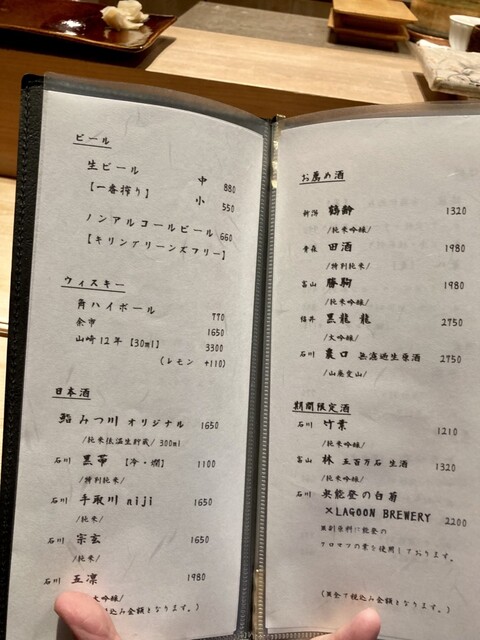 ビール
生ビール 中 880
【一番搾り】 小 550
ノンアルコールビール 660
【キリングリーンズフリー】
ウィスキー
角ハイボール 770
余市 1650
山崎12年【30ml】 3300
(レモン +110)
日本酒
鮨みつ川 オリジナル 1650
/純米低温生貯蔵/ 300ml
石川 黒帯 【冷・燗】 1100
/特別純米/
石川 手取川 niji 1650
/純米/
石川 宗玄 1650
/純米/
石川 五凛 1980
大吟醸/
税込み金額となります。)
お薦め酒
新潟 鶴齢 1320
/純米吟醸/
青森 田酒 1980
/特別純米/
富山 勝駒 1980
/純米吟醸/
福井 黒龍 龍 2750
/大吟醸/
石川 農口 無濾過生原酒 2750
/山廃愛山/
期間限定酒
石川 竹葉 1210
/純米吟醸/
富山 林 五百万石 生酒 1320
/純米吟醸/
石川 奥能登の白菊
×LAGOON BREWERY 2200
※副原料に能登の
クロマツの葉を使用しております。
(全て税込み金額となります。)